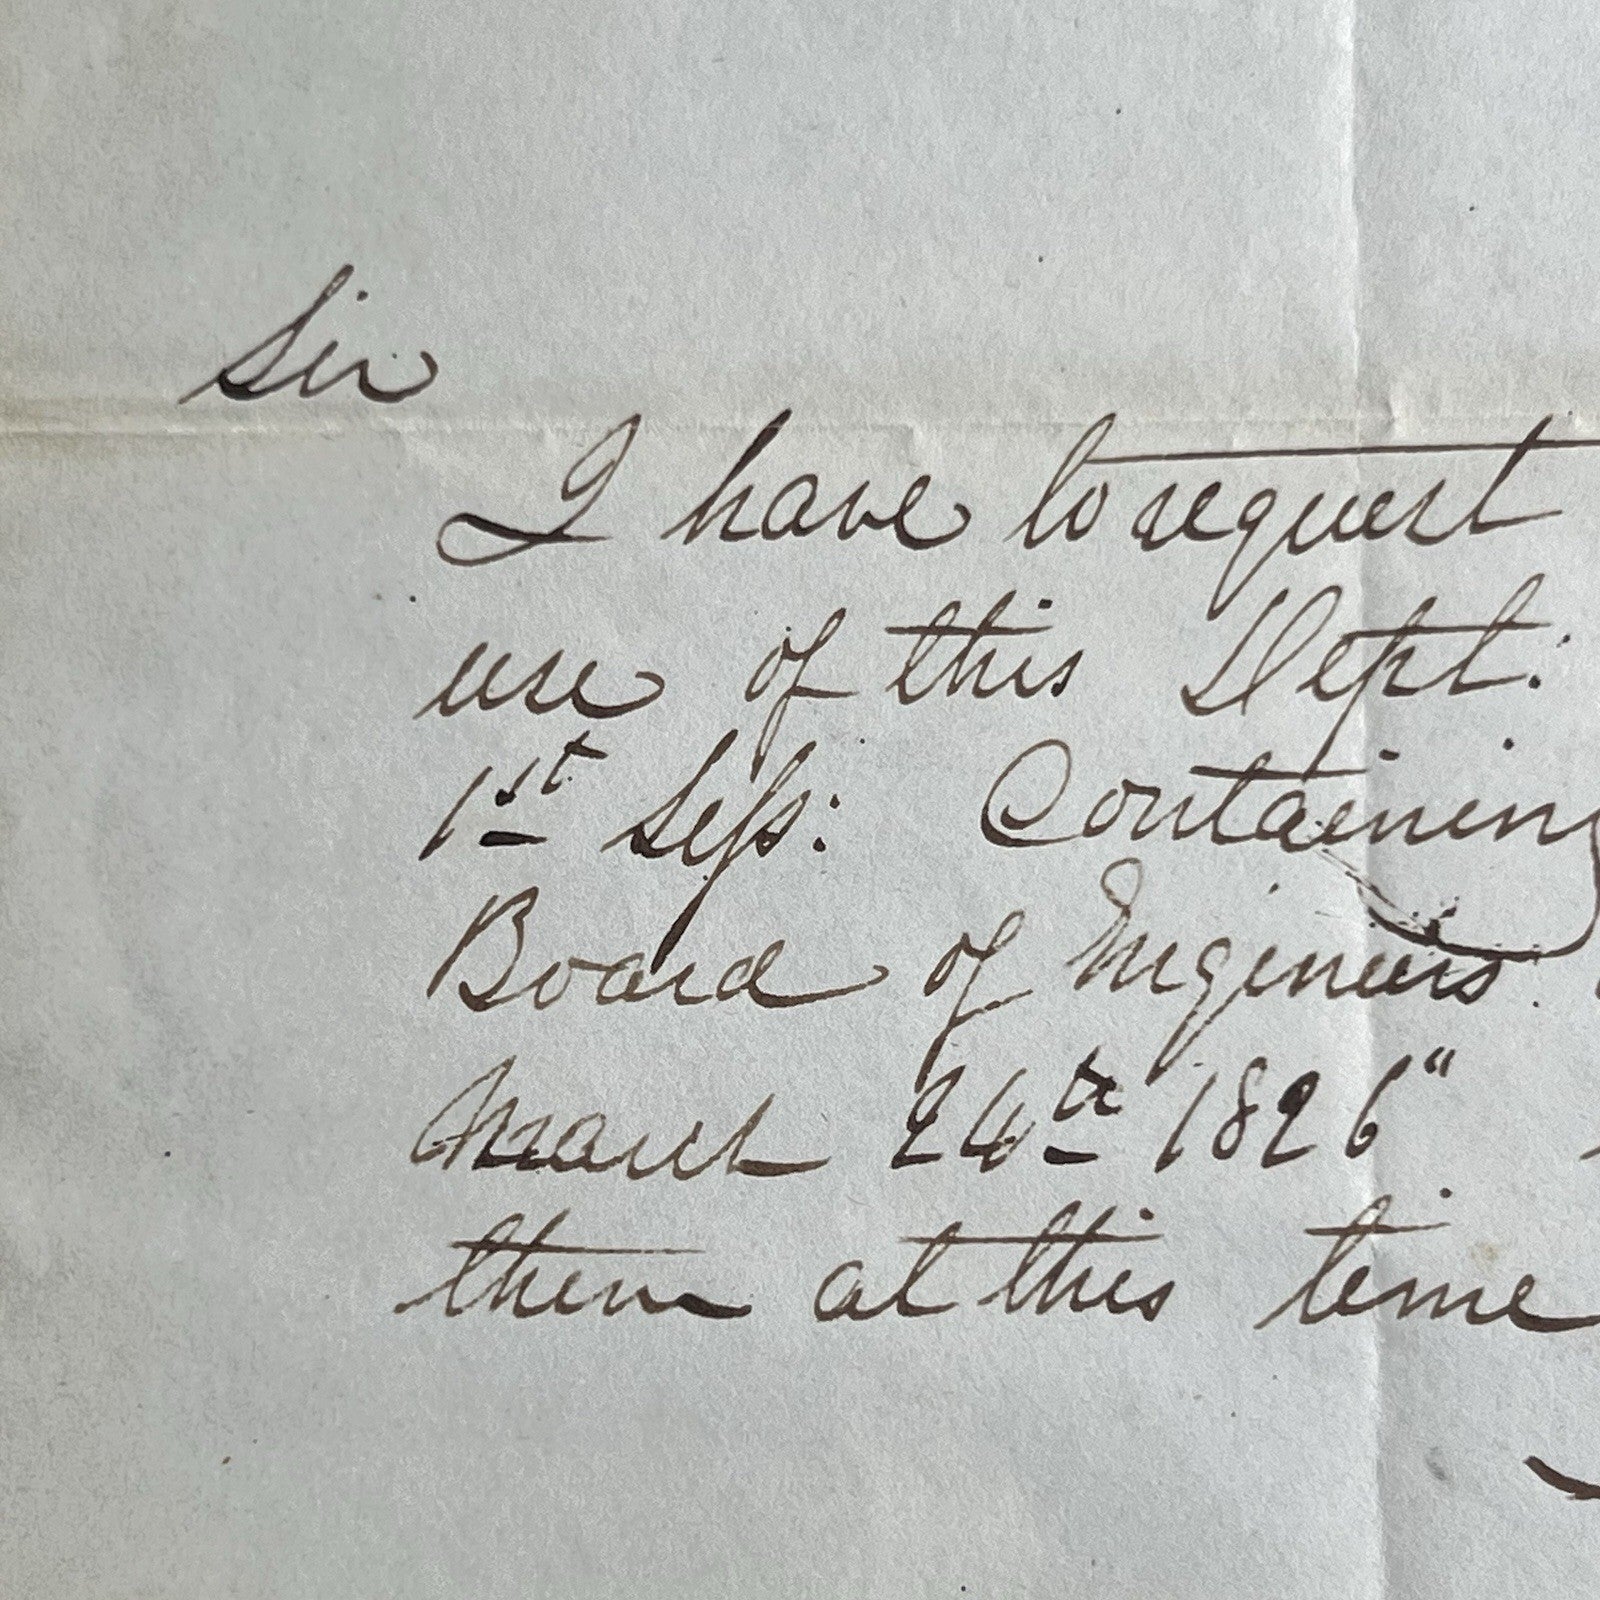 Sir
I have to request
use of this Dept:
1st Sess: Containing
Board of Engineers
March 24th 1826"
them at this time